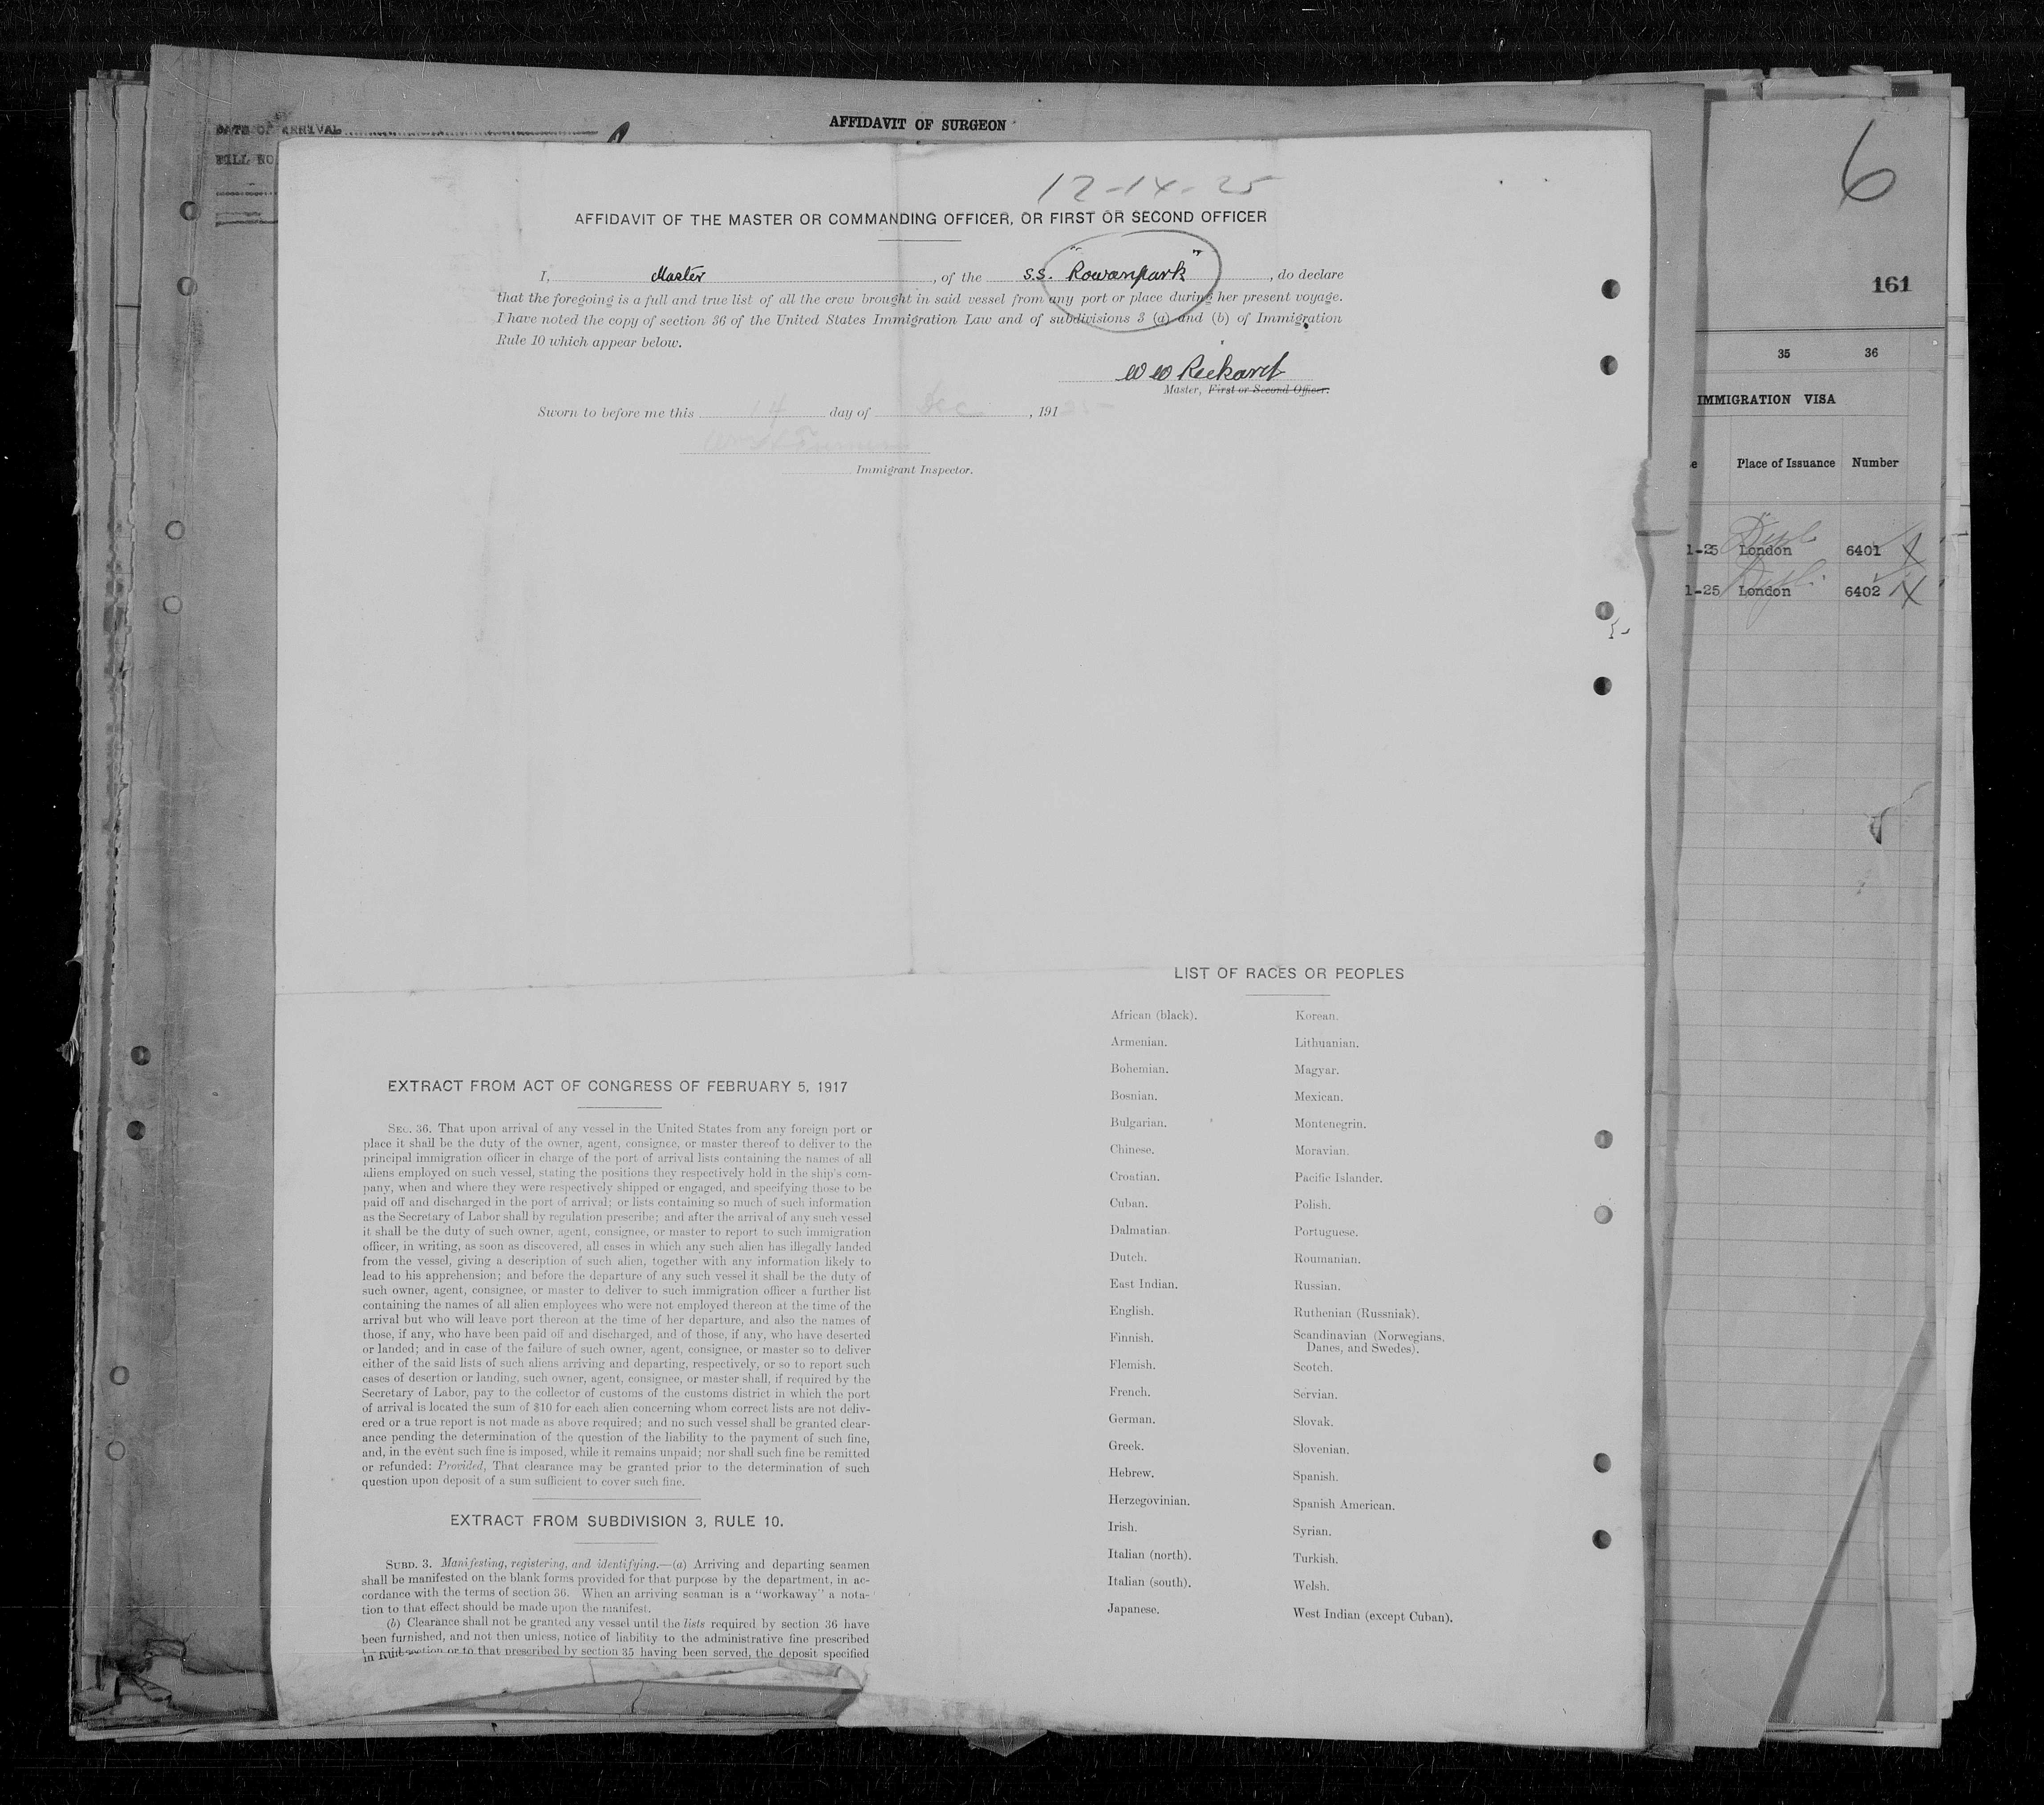 DATE OF ARRIVAL
AFFIDAVIT OF SURGEON
6
161
35 36
IMMIGRATION VISA
Place of Issuance Number
1-25 London 6401
1-25 London 6402
12-14-25
AFFIDAVIT OF THE MASTER OR COMMANDING OFFICER, OR FIRST OR SECOND OFFICER
I, Master, of the S.S. "Rowanpark", do declare
that the foregoing is a full and true list of all the crew brought in said vessel from any port or place during her present voyage.
I have noted the copy of section 36 of the United States Immigration Law and of subdivisions 3 (a) and (b) of Immigration
Rule 10 which appear below.
W W Rickard
Master, First or Second Officer.
Sworn to before me this 14 day of Dec, 1925
Immigrant Inspector.
EXTRACT FROM ACT OF CONGRESS OF FEBRUARY 5, 1917
SEC. 36. That upon arrival of any vessel in the United States from any foreign port or
place it shall be the duty of the owner, agent, consignee, or master thereof to deliver to the
principal immigration officer in charge of the port of arrival lists containing the names of all
aliens employed on such vessel, stating the positions they respectively hold in the ship's com-
pany, when and where they were respectively shipped or engaged, and specifying those to be
paid off and discharged in the port of arrival; or lists containing so much of such information
as the Secretary of Labor shall by regulation prescribe; and after the arrival of any such vessel
it shall be the duty of such owner, agent, consignee, or master to report to such immigration
officer, in writing, as soon as discovered, all cases in which any such alien has illegally landed
from the vessel, giving a description of such alien, together with any information likely to
lead to his apprehension; and before the departure of any such vessel it shall be the duty of
such owner, agent, consignee, or master to deliver to such immigration officer a further list
containing the names of all alien employees who were not employed thereon at the time of the
arrival but who will leave port thereon at the time of her departure, and also the names of
those, if any, who have been paid off and discharged, and of those, if any, who have deserted
or landed; and in case of the failure of such owner, agent, consignee, or master so to deliver
either of the said lists of such aliens arriving and departing, respectively, or so to report such
cases of desertion or landing, such owner, agent, consignee, or master shall, if required by the
Secretary of Labor, pay to the collector of customs of the customs district in which the port
of arrival is located the sum of $10 for each alien concerning whom correct lists are not deliv-
ered or a true report is not made as above required; and no such vessel shall be granted clear-
ance pending the determination of the question of the liability to the payment of such fine,
and, in the event such fine is imposed, while it remains unpaid; nor shall such fine be remitted
or refunded: Provided, That clearance may be granted prior to the determination of such
question upon deposit of a sum sufficient to cover such fine.
EXTRACT FROM SUBDIVISION 3, RULE 10.
SUBD. 3. Manifesting, registering, and identifying.—(a) Arriving and departing seamen
shall be manifested on the blank forms provided for that purpose by the department, in ac-
cordance with the terms of section 36. When an arriving seaman is a "workaway" a nota-
tion to that effect should be made upon the manifest.
(b) Clearance shall not be granted any vessel until the lists required by section 36 have
been furnished, and not then unless, notice of liability to the administrative fine prescribed
in said section or to that prescribed by section 35 having been served, the deposit specified
LIST OF RACES OR PEOPLES
African (black).
Armenian.
Bohemian.
Bosnian.
Bulgarian.
Chinese.
Croatian.
Cuban.
Dalmatian.
Dutch.
East Indian.
English.
Finnish.
Flemish.
French.
German.
Greek.
Hebrew.
Herzegovinian.
Irish.
Italian (north).
Italian (south).
Japanese.
Korean.
Lithuanian.
Magyar.
Mexican.
Montenegrin.
Moravian.
Pacific Islander.
Polish.
Portuguese.
Roumanian.
Russian.
Ruthenian (Russniak).
Scandinavian (Norwegians,
Danes, and Swedes).
Scotch.
Servian.
Slovak.
Slovenian.
Spanish.
Spanish American.
Syrian.
Turkish.
Welsh.
West Indian (except Cuban).